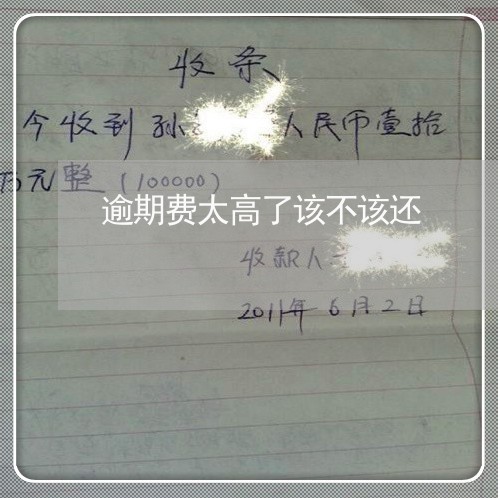 收条
今收到孙 人民币壹拾
万元整（100000）
逾期费太高了该不该还
收款人
2011年6月2日